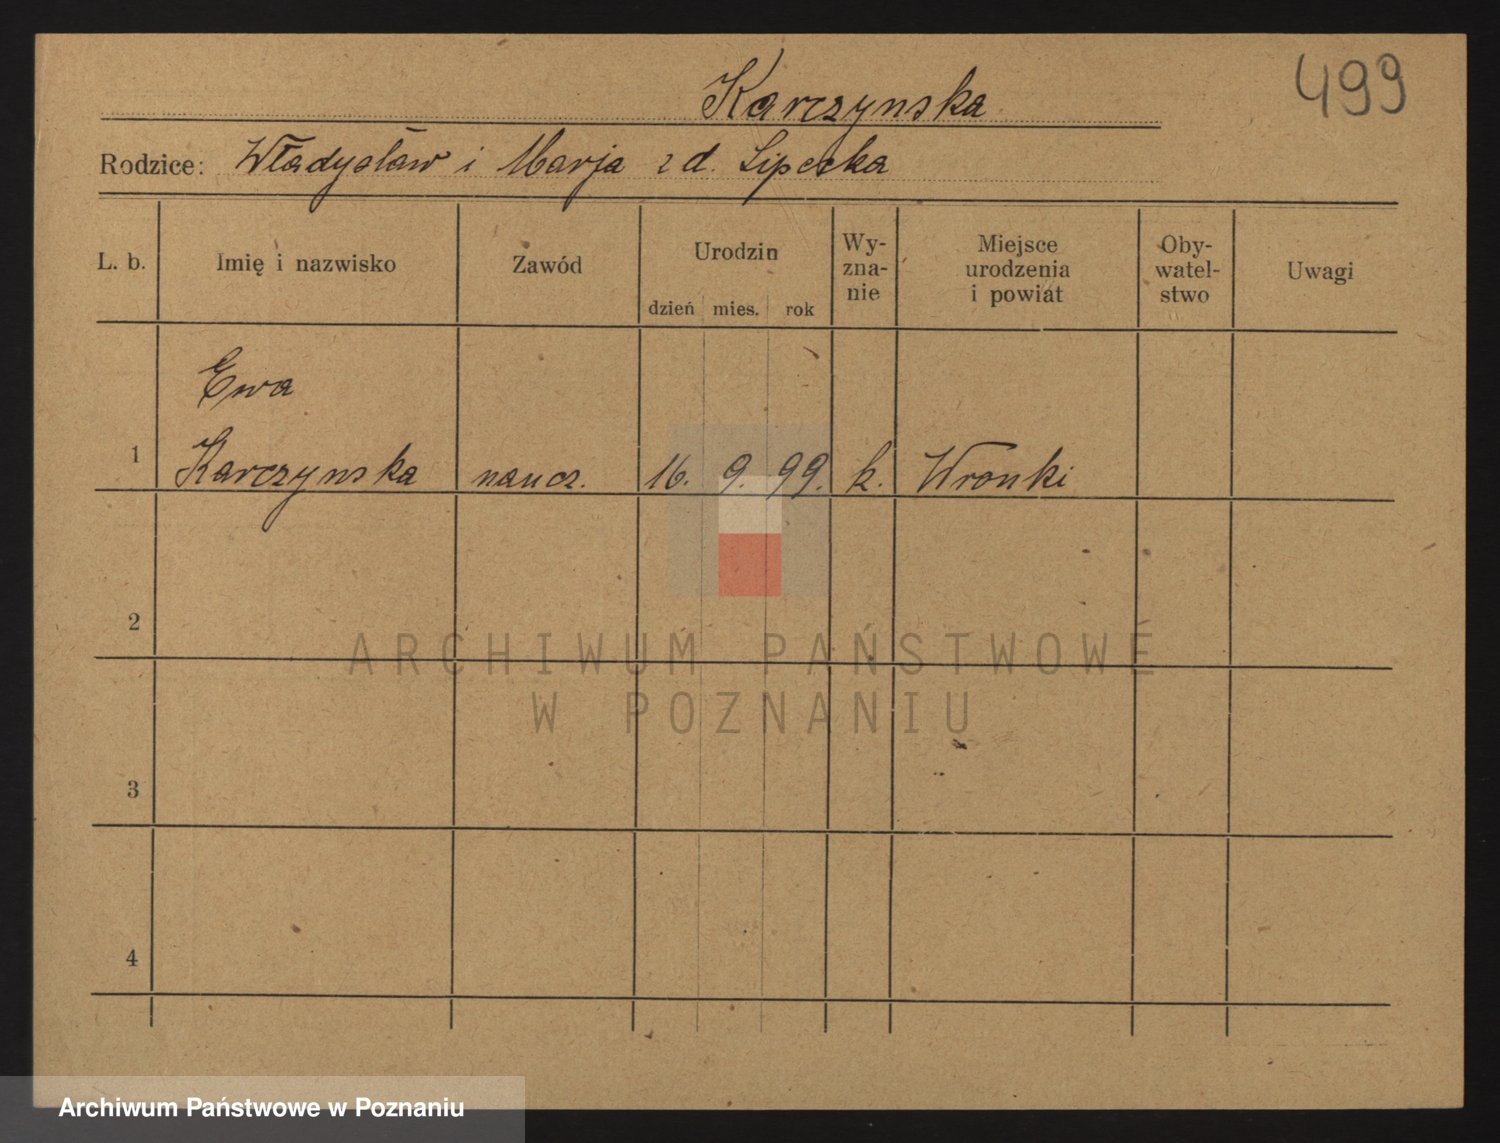 Karczynska 499
Rodzice: Władysław i Marja z d. Lipecka
L. b. Imię i nazwisko Zawód Urodzin dzień mies. rok Wy-zna-nie Miejsce urodzenia i powiat Oby-watel-stwo Uwagi
Ewa
1 Karczynska naucz. 16. 9. 99. k. Wronki
2
ARCHIWUM PAŃSTWOWE
W POZNANIU
3
4
Archiwum Państwowe w Poznaniu